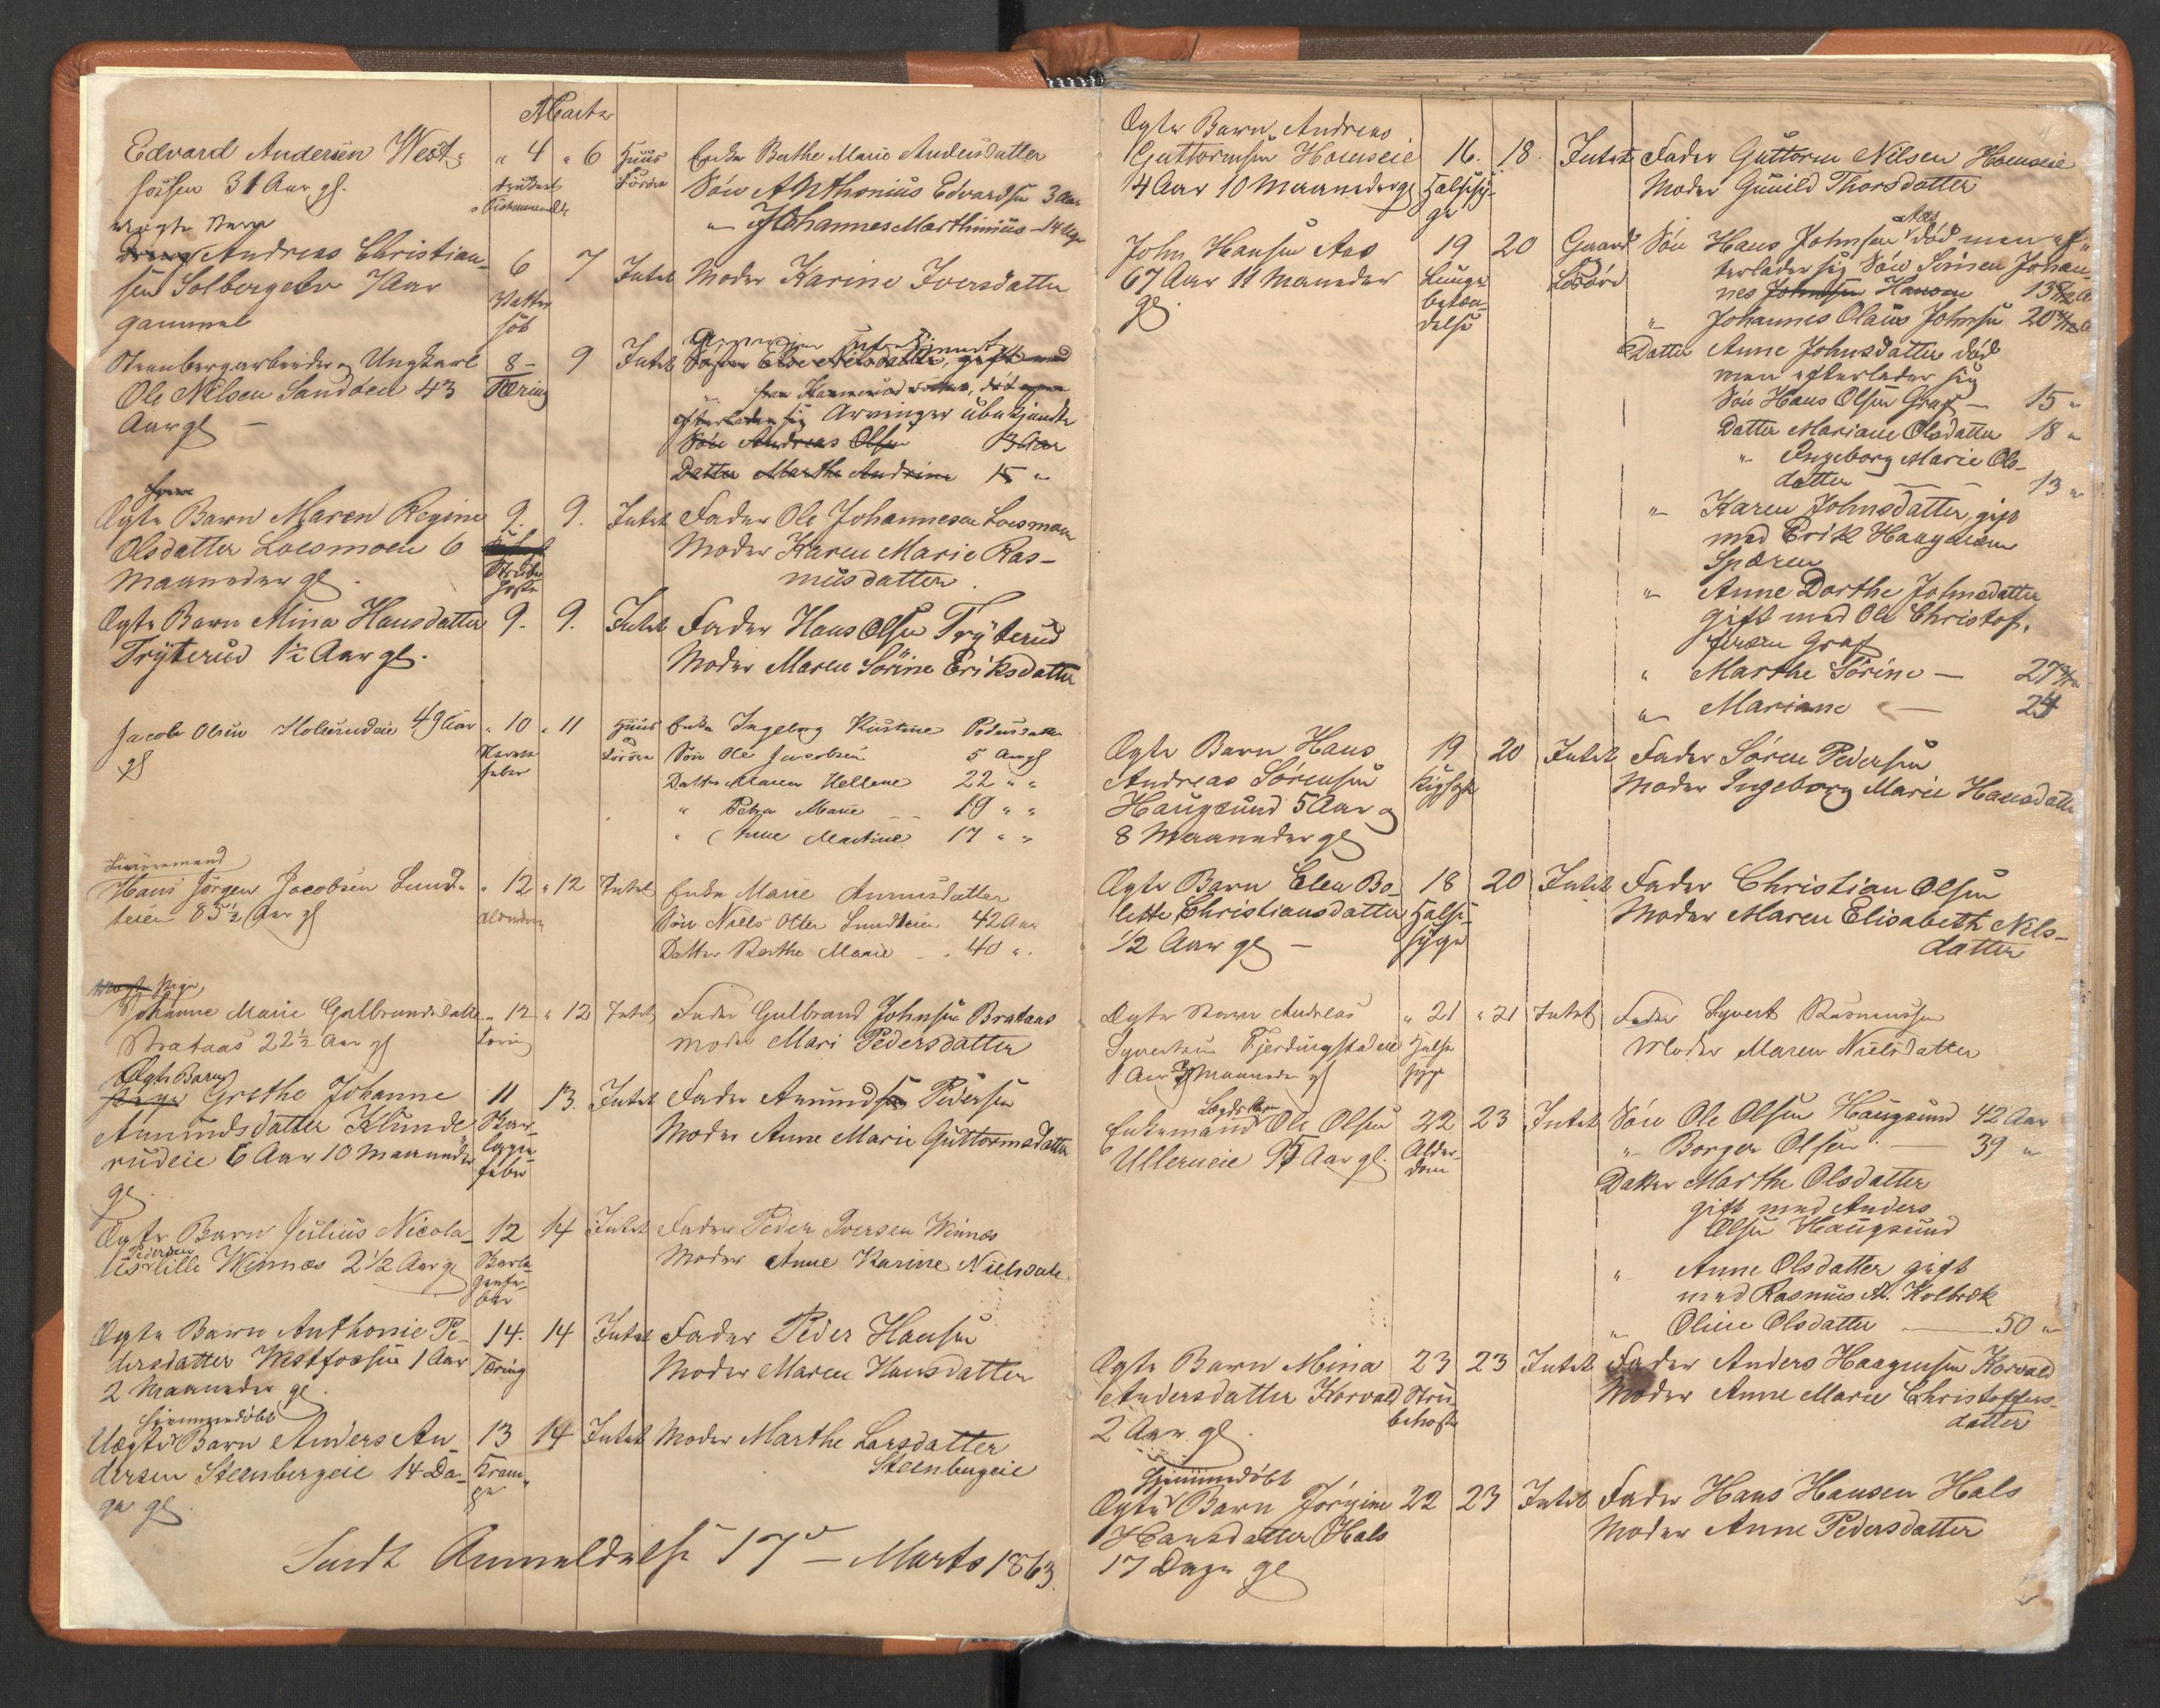 Marts
Edvard Andersen West- " 4 " 6 Huus Enke Berthe Marie Andersdatter
fossen 31 Aar gl. Løsøre Søn Anthonius Edvardsen 3 Aar
" Johannes Marthinius
uægte Barn
Andreas Christian- 6 7 Intet Moder Karine Iversdatter
sen Solbergelv 7 Aar
gammel
Steenbergarbeider og Ungkarl 8 - 9 Intet Søster Else Nilsdatter, gift med
Ole Nilsen Sandaen 43 Tæring
Aar gl - efterlader sig Arvinger ubekjendte
Søn Andreas Olsen 13 Aar
Datter Marthe Andrine 15 "
Ægte Barn Maren Regine 9. 9. Intet Fader Ole Johannesen Loesmoen
Olsdatter Loesmoen 6 Moder Karen Marie Ras-
Maaneder gl. Strube musdatter
hoste
Ægte Barn Mina Hansdatter 9. 9. Intet Fader Hans Olsen Tryterud
Tryterud 1½ Aar gl. Moder Maren Sørine Eriksdatter
Jacob Olsen 49 Aar " 10 " 11 Huus Enke Ingeborg Kirstine Pedersdatter
gl Nerve Løsøre Søn Ole Jacobsen 5 Aar gl
feber Datter Maren Hellene 22 " "
" Petra Marie 19 " "
" Anne Martine 17 " "
Hans Jørgen Jacobsen Lund- " 12 " 12 Intet Enke Marie Amundsdatter
teien 85½ Aar gl Alderdom Søn Niels Otter Lundteien 42 Aar
Datter Berthe Marie 40 "
Pige
Johanne Marie Gulbrandsdatter " 12 " 12 Intet Fader Gulbrand Johnsen Brataas
Brataas 22½ Aar gl Tæring Moder Mari Pedersdatter
Ægte Barn
Pige Grethe Johanne 11 13. Intet Fader Amund Pedersen
Amundsdatter Klunde- Skar- Moder Anne Marie Guttormsdatter
rudeie 6 Aar 10 Maaneder lagen
gl. feber
Ægte Barn Julius Nicola- 12 14 Intet Fader Peder Iversen Winnæs
Pedersen
lille Winnæs 2½ Aar gl Skarla- Moder Anne Karine Nielsdatr
gensfe-
ber
Ægte Barn Anthonie Pe- 14. 14 Intet Fader Peder Hansen
dersdatter Westfossen 1 Aar Tæring Moder Maren Hansdatter
2 Maaneder gl.
hjemmedøbt
Uægte Barn Anders An- 13 14 Intet Moder Marthe Larsdatter
dersen Steenbergeie 14 Da- Kram- Steenbergeie
ge gl. pe
Sendt Anmeldelse 17de Marts 1863.
Ægte Barn Andreas
Guttormsen Hoenseie 16. 18. Intet Fader Guttorm Nilsen Hoenseie
4 Aar 10 Maaneder gl Halssy- Moder Gunild Thorsdatter
ge
John Hansen Aas 19 20 Gaard Søn Hans Johnsen Aas død men ef-
67 Aar 11 Maaneder Lunge og terlader sig Søn Johan-
gl. betæn- Løsøre nes Johnsen Hansen
delse " Johannes Olaus Johnsen
Datter Anne Johnsdatter død
men efterlader sig
Søn Hans Olsen Graf - 15 "
Datter Mariane Olsdatter 18 "
" Ingeborg Marie Ols-
datter - - 13 "
" Karen Johnsdatter gift
med Erik Haagensen
Spæren
" Anne Dorthe Johnsdatter
gift med Ole Christof-
fersen Graf
" Marthe Sørine - 27
" Mariane - 24
Ægte Barn Hans 19 20 Intet Fader Søren Pedersen
Andreas Sørensen Kighoste Moder Ingeborg Marie Hansdatter
Haugsund 5 Aar og
8 Maaneder gl
Ægte Barn Elen Bo- 18 20 Intet Fader Christian Olsen
lette Christiansdatter Hals- Moder Maren Elisabeth Nils-
1/2 Aar gl - syge datter
Ægte Barn Andreas " 21 " 21 Intet Fader Syvert Rasmussen
Syvertsen Fjerdingstadeie Hals Moder Maren Nielsdatter
1 Aar Maaneder gl syge
Lægds
Enkemand Ole Olsen 22 23 Intet Søn Ole Olsen Haugsund 42 Aar
Ullerneie Aar gl. Alder- " Borger Olsen - 39 "
dom Datter Marthe Olsdatter
gift med Anders
Olsen Haugsund
" Anne Olsdatter gift
med Rasmus A. Kolbræk
" Oline Olsdatter - 50 "
Ægte Barn Mina 23 23 Intet Fader Anders Haagensen Korvald
Andersdatter Korvald Stru- Moder Anne Marie Christoffers-
2 Aar gl. behoste datter
hjemmedøbt
Ægte Barn Jørgine 22 23 Intet Fader Hans Hansen Hals
Hansdatter Hals Moder Anne Pedersdatter
17 Dage gl